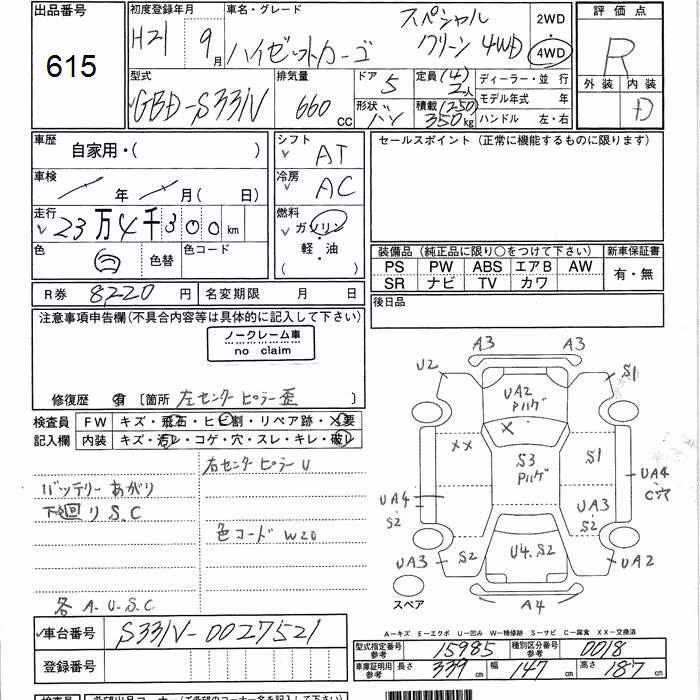 出品番号
615
初度登録年月
H21 9月
車名・グレード
ハイゼットカーゴ
スペシャル
クリーン 4WD
2WD
4WD
評価点
R
外装 内装
D
型式
GBD-S331V
排気量
660 CC
ドア 5
形状 バン
定員 (4) 2人
積載 (250) 350kg
ディーラー・並行
モデル年式 年
ハンドル 左・右
車歴
自家用・( )
車検
年 月( 日)
走行
23万4千300km
色
色替
色コード
シフト
AT
冷房
AC
燃料
ガソリン
軽・油
( )
セールスポイント (正常に機能するものに限ります)
装備品 (純正品に限り○をつけて下さい)
PS PW ABS エアB AW
SR ナビ TV カワ
新車保証書
有・無
後日品
R券 8220円
名変期限 月 日
注意事項申告欄(不具合内容等は具体的に記入して下さい)
ノークレーム車
no claim
修復歴 有 〔箇所 左センターピラー歪 〕
検査員
記入欄
FW キズ・飛石・ヒビ割・リペア跡・X要
内装 キズ・汚レ・コゲ・穴・スレ・キレ・破レ
右センターピラーU
バッテリーあがり
下回り S.C
色コード W20
各 A.U.S.C
車台番号 S331V-0027521
登録番号
A3 A3
U2 S1
UA2
Pハゲ
X
XX
S3
Pハゲ
S1
UA4
C穴
UA4
S2
UA3
S2
UA3 S2
U4.S2
UA2
A4
スペア
A-キズ E-エクボ U-凹み W-補修跡 S-サビ C-腐食 XX-交換済
型式指定番号
参考
15985
種別区分番号
参考
0018
車庫証明用
参考
長さ 339cm
幅 147cm
高さ 187cm